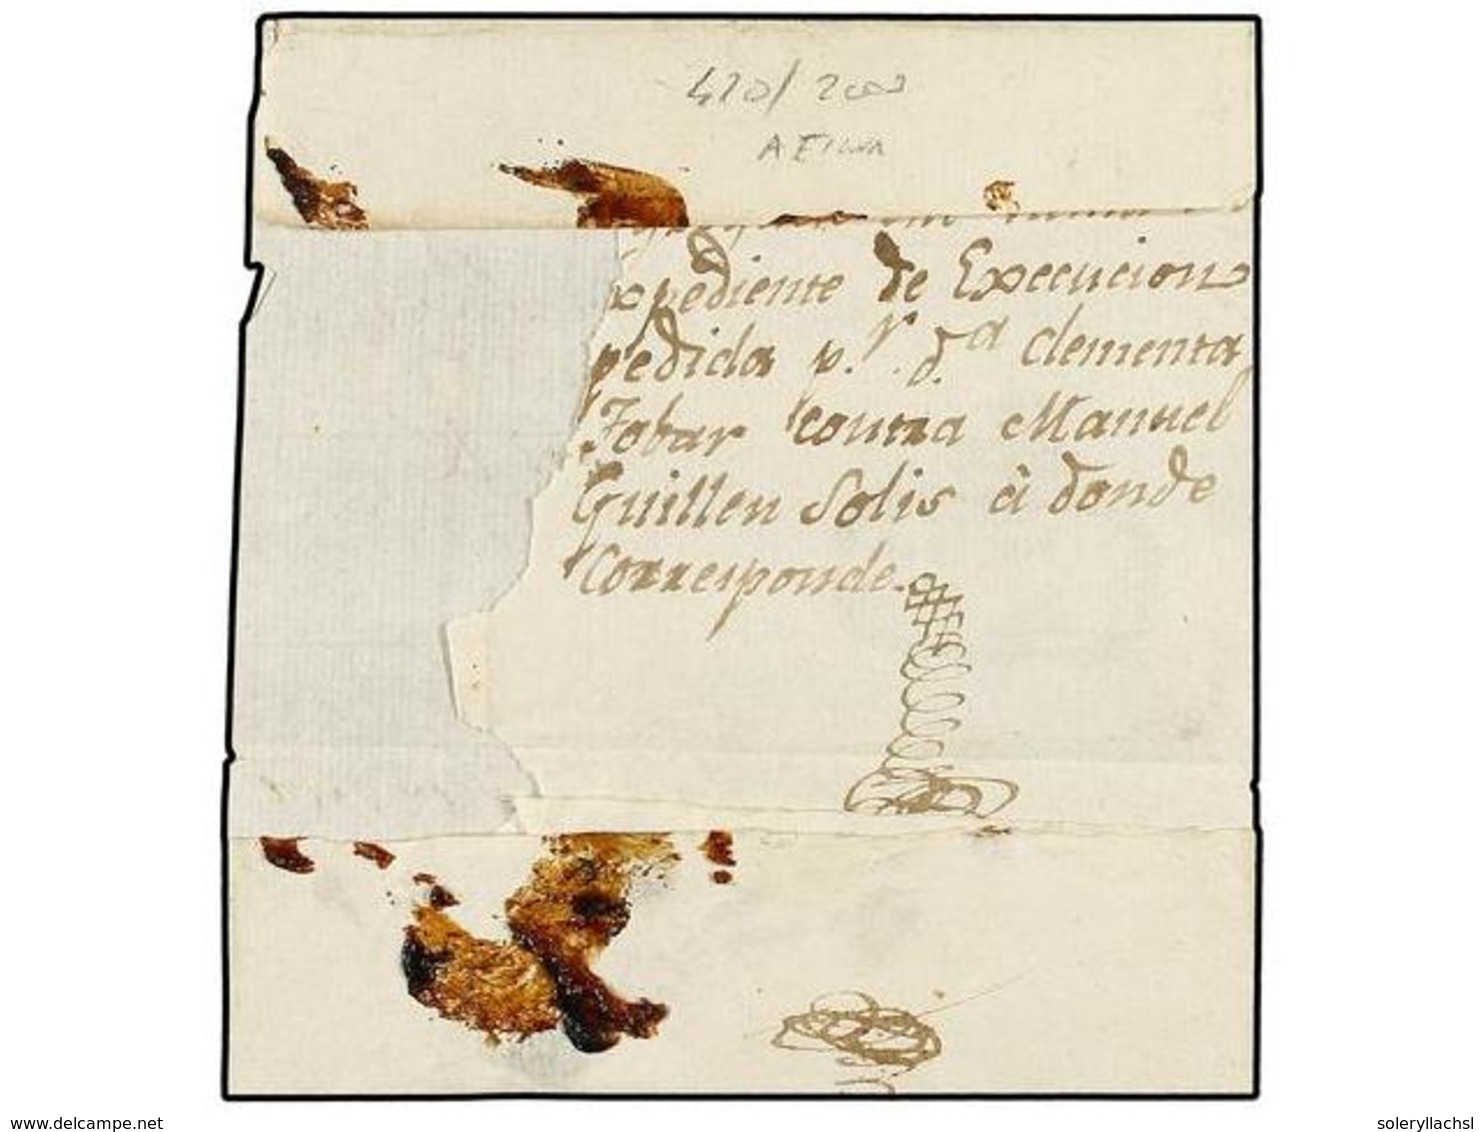 420/2000
xpediente de Execucion
pedida p.r d.a Clementa
Tobar contra Manuel
Guillen Solis â donde
Corresponde.
www.delcampe.net
soleryllachsl